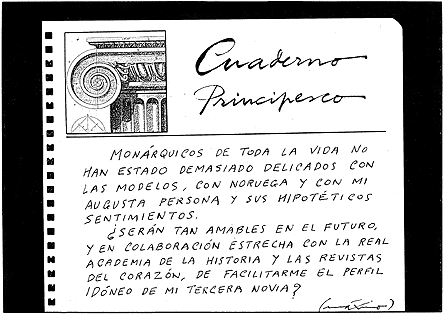 Cuaderno
Principesco
MONÁRQUICOS DE TODA LA VIDA NO
HAN ESTADO DEMASIADO DELICADOS CON
LAS MODELOS, CON NORUEGA Y CON MI
AUGUSTA PERSONA Y SUS HIPOTÉTICOS
SENTIMIENTOS.
¿SERÁN TAN AMABLES EN EL FUTURO,
Y EN COLABORACIÓN ESTRECHA CON LA REAL
ACADEMIA DE LA HISTORIA Y LAS REVISTAS
DEL CORAZÓN, DE FACILITARME EL PERFIL
IDÓNEO DE MI TERCERA NOVIA?